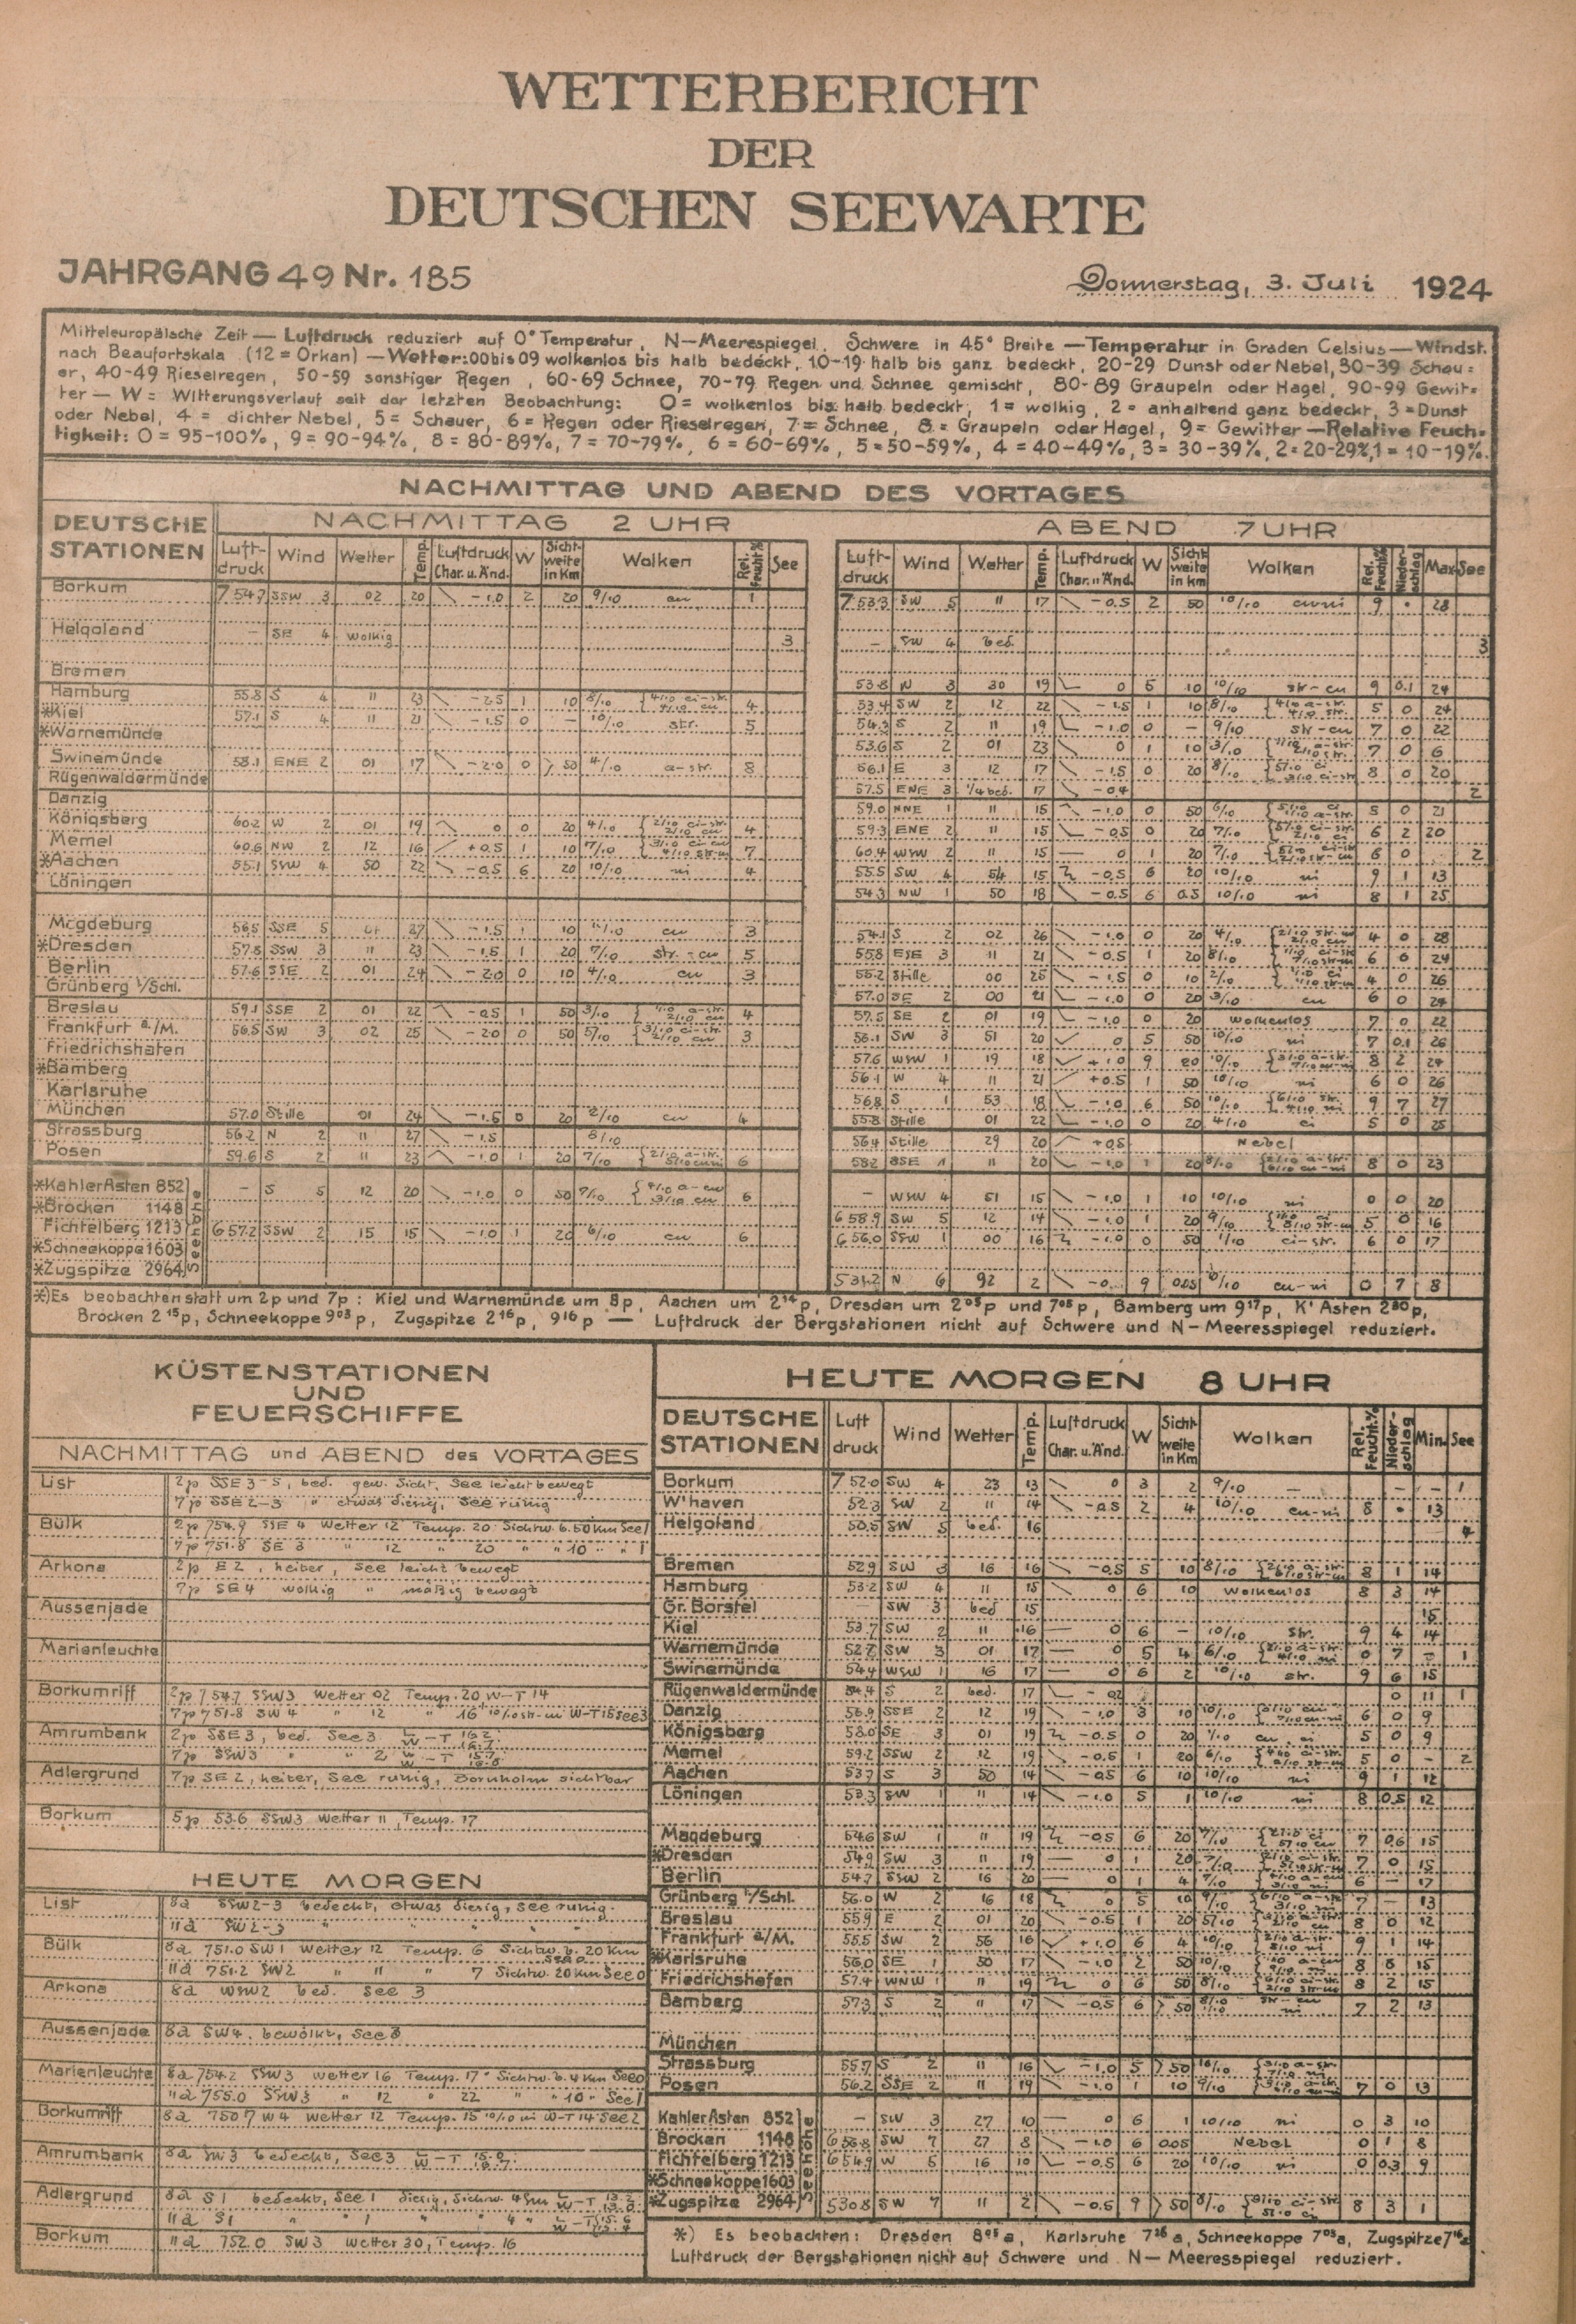 WETTERBERICHT
DER
DEUTSCHEN SEEWARTE
JAHRGANG 49 Nr. 185
Donnerstag, 3. Juli 1924
Mitteleuropälsche Zeit — Luftdruck reduziert auf 0° Temperatur, N—Meerespiegel, Schwere in 45° Breite — Temperatur in Graden Celsius — Windst.
nach Beaufortskala (12 = Orkan) — Wetter: 00 bis 09 wolkenlos bis halb bedeckt, 10-19 halb bis ganz bedeckt, 20-29 Dunst oder Nebel, 30-39 Schau=
er, 40-49 Rieselregen, 50-59 sonstiger Regen, 60-69 Schnee, 70-79 Regen und Schnee gemischt, 80-89 Graupeln oder Hagel, 90-99 Gewit=
ter — W = Witterungsverlauf seit der letzten Beobachtung: 0 = wolkenlos bis halb bedeckt, 1 = wolkig, 2 = anhaltend ganz bedeckt, 3 = Dunst
oder Nebel, 4 = dichter Nebel, 5 = Schauer, 6 = Regen oder Rieselregen, 7 = Schnee, 8 = Graupeln oder Hagel, 9 = Gewitter — Relative Feuch=
tigkeit: 0 = 95-100%, 9 = 90-94%, 8 = 80-89%, 7 = 70-79%, 6 = 60-69%, 5 = 50-59%, 4 = 40-49%, 3 = 30-39%, 2 = 20-29%, 1 = 10-19%.
NACHMITTAG UND ABEND DES VORTAGES
DEUTSCHE STATIONEN
NACHMITTAG 2 UHR
Luft-druck Wind Wetter Temp. Luftdruck Char. u. Änd. W Sicht-weite in Km Wolken Rel. Feucht.% See
ABEND 7 UHR
Luft-druck Wind Wetter Temp. Luftdruck Char. u. Änd. W Sicht weite in km Wolken Rel. Feucht% Nieder-schlag Max See
Borkum 754.7 SSW 3 02 20 -1.0 2 20 9/10 cu 753.3 SW 5 11 17 -0.5 2 50 10/10 9 28
Helgoland – SE 4 wolkig 3 – SW 4 bed. 3
Bremen 53.8 N 3 30 19 0 5 10 10/10 str-cu 9 0.1 24
Hamburg 55.8 S 4 11 23 -2.5 1 10 8/10 4 53.4 SW 2 12 22 -1.5 1 10 8/10 5 0 24
*Kiel 57.1 S 4 11 21 -1.5 0 – 10/10 str. 5 54.3 S 2 11 19 -1.0 0 – 9/10 str-cu 7 0 22
*Warnemünde 53.6 S 2 01 23 0 1 10 3/10 7 0 6
Swinemünde 58.1 ENE 2 01 17 -2.0 0 > 50 4/10 a-str. 8 56.1 E 3 12 17 -1.5 0 20 8/10 8 0 20
Rügenwaldermünde 57.5 ENE 3 1/4 bed. 17 -0.4 2
Danzig 59.0 NNE 1 11 15 -1.0 0 50 6/10 5 0 21
Königsberg 60.2 W 2 01 19 0 0 20 4/10 4 59.3 ENE 2 11 15 -0.5 0 20 7/10 6 2 20
Memel 60.6 NW 2 12 16 +0.5 1 10 7/10 7 60.4 WSW 2 11 15 — 0 1 20 7/10 6 0 2
*Aachen 55.1 SSW 4 50 22 -0.5 6 20 10/10 ni 4 55.5 SW 4 54 15 -0.5 6 20 10/10 ni 9 1 13
Löningen 54.3 NW 1 50 18 -0.5 6 0.5 10/10 ni 8 1 25
Magdeburg 56.5 SSE 5 01 27 -1.5 1 10 cu 3 54.1 S 2 02 26 -1.0 0 20 4/10 4 0 28
*Dresden 57.8 SSW 3 11 23 -1.5 1 20 7/10 str.-cu 5 55.8 ESE 3 11 21 -0.5 1 20 8/10 6 0 24
Berlin 57.6 SSE 2 01 24 -2.0 0 10 4/10 cu 3 55.2 Stille 00 25 -1.5 0 10 2/10 4 0 26
Grünberg i/Schl. 57.0 SE 2 00 21 -1.0 0 20 3/10 cu 6 0 24
Breslau 59.1 SSE 2 01 22 -0.5 1 50 3/10 4 57.5 SE 2 01 19 -1.0 0 20 wolkenlos 7 0 22
Frankfurt a./M. 56.5 SW 3 02 25 -2.0 0 50 5/10 3 56.1 SW 3 51 20 0 5 50 10/10 ni 7 0.1 26
Friedrichshafen 57.6 WSW 1 19 18 +1.0 9 20 10/10 8 2 24
*Bamberg 56.1 W 4 11 21 +0.5 1 50 10/10 ni 6 0 26
Karlsruhe 56.8 S 1 53 18 -1.0 6 50 10/10 9 7 27
München 57.0 Stille 01 24 -1.5 0 20 2/10 cu 4 55.8 Stille 01 22 -1.0 0 20 4/10 ci 5 0 25
Strassburg 56.2 N 2 11 27 -1.5 8/10 56.4 Stille 29 20 +0.5 Nebel
Posen 59.6 S 2 11 23 -1.0 1 20 7/10 6 58.2 SSE 1 11 20 -1.0 1 20 8/10 8 0 23
Seehöhe
*Kahler Asten 852 – S 5 12 20 -1.0 0 50 7/10 6 – WSW 4 51 15 -1.0 1 10 10/10 ni 0 0 20
*Brocken 1148 658.9 SW 5 12 14 -1.0 1 20 9/10 5 0 16
Fichtelberg 1213 657.2 SSW 2 15 15 -1.0 1 20 6/10 cu 6 656.0 SSW 1 00 16 -1.0 0 50 1/10 ci-str. 6 0 17
*Schneekoppe 1603
*Zugspitze 2964 531.2 N 6 92 2 9 0.05 10/10 cu-ni 0 7 8
*) Es beobachten statt um 2p und 7p: Kiel und Warnemünde um 8p, Aachen um 2¹⁴p, Dresden um 2⁰⁵p und 7⁰⁵p, Bamberg um 9¹⁷p, K' Asten 2³⁰p,
Brocken 2¹⁵p, Schneekoppe 9⁰³p, Zugspitze 2¹⁶p, 9¹⁶p — Luftdruck der Bergstationen nicht auf Schwere und N—Meeresspiegel reduziert.
KÜSTENSTATIONEN
UND
FEUERSCHIFFE
NACHMITTAG und ABEND des VORTAGES
List 2p SSE 3-5, bed. gew. Sicht, See leicht bewegt
7p SSE 2-3 " etwas diesig, See ruhig
Bülk 2p 754.9 SSE 4 Wetter 12 Temp. 20 Sichtw. b. 50 km See 1
7p 751.8 SE 3 " 12 " 20 " " 10 " " 1
Arkona 2p E 2, heiter, See leicht bewegt
7p SE 4 wolkig " mäßig bewegt
Aussenjade
Marienleuchte
Borkumriff 2p 754.7 SSW 3 Wetter 02 Temp. 20 W-T 14
7p 751.8 SW 4 " 12 " 16 10/10 str-cu W-T 15 See 3
Amrumbank 2p SSE 3, bed. See 3
7p SSW 3 " " 2
Adlergrund 7p SE 2, heiter, See ruhig, Bornholm sichtbar
Borkum 5p 53.6 SSW 3 Wetter 11, Temp. 17
HEUTE MORGEN
List 8a SSW 2-3 bedeckt, etwas diesig, See ruhig
11a SW 2-3 " " " " "
Bülk 8a 751.0 SW 1 Wetter 12 Temp. 6 Sichtw. b. 20 Km See 0
11a 751.2 SW 2 " 11 " 7 Sichtw. 20 Km See 0
Arkona 8a WSW 2 bed. See 3
Aussenjade 8a SW 4. bewölkt, See 3
Marienleuchte 8a 754.2 SSW 3 Wetter 16 Temp. 17 Sichtw. b. 4 Km See 0
11a 755.0 SSW 3 " 12 " 22 " " 10 " See 1
Borkumriff 8a 750.7 W 4 Wetter 12 Temp. 15 10/10 ni W-T 14 See 2
Amrumbank 8a SW 3 bedeckt, See 3
Adlergrund 8a S 1 bedeckt, See 1 diesig, Sichtw. 4 Sm
11a S 1 " " 1 " " 4 "
Borkum 11a 752.0 SW 3 Wetter 30, Temp. 16
HEUTE MORGEN 8 UHR
DEUTSCHE STATIONEN Luft druck Wind Wetter Temp. Luftdruck Char. u. Änd. W Sicht weite in Km Wolken Rel. Feucht.% Nieder-schlag Min. See
Borkum 752.0 SW 4 23 13 0 3 2 9/10 – – – 1
W'haven 52.3 SW 2 11 14 -0.5 2 4 10/10 cu-ni 8 13
Helgoland 50.5 SW 5 bed. 16 4
Bremen 52.9 SW 3 16 16 -0.5 5 10 8/10 8 1 14
Hamburg 53.2 SW 4 11 15 0 6 10 Wolkenlos 8 3 14
Gr. Borstel – SW 3 bed 15 15
Kiel 53.7 SW 2 11 16 — 0 6 – 10/10 str. 9 4 14
Warnemünde 52.7 SW 3 01 17 — 0 5 4 6/10 0 7 – 1
Swinemünde 54.4 WSW 1 16 17 — 0 6 2 10/10 str. 9 6 15
Rügenwaldermünde 54.4 S 2 bed. 17 0 11 1
Danzig 56.9 SSE 2 12 19 -1.0 3 10 10/10 6 0 9
Königsberg 58.0 SE 3 01 19 -0.5 0 20 1/10 5 0 9
Memel 59.2 SSW 2 12 19 -0.5 1 20 6/10 5 0 – 2
Aachen 53.7 S 3 50 14 -0.5 6 10 10/10 ni 9 1 12
Löningen 53.3 SW 1 11 14 -1.0 5 1 10/10 ni 8 0.5 12
Magdeburg 54.6 SW 1 11 19 -0.5 6 20 7/10 7 0.6 15
*Dresden 54.9 SW 3 11 19 — 0 1 20 7/10 7 0 15
Berlin 54.7 SSW 2 16 20 — 0 1 4 7/10 6 – 17
Grünberg i/Schl. 56.0 W 2 16 18 0 5 10 9/10 7 – 13
Breslau 55.9 E 2 01 20 -0.5 1 20 5/10 8 0 12
Frankfurt a/M. 55.5 SW 2 56 16 +1.0 6 4 10/10 9 1 14
*Karlsruhe 56.0 SE 1 50 17 -1.0 2 50 10/10 8 8 15
Friedrichshafen 57.4 WNW 1 11 19 0 6 50 8/10 8 2 15
Bamberg 57.3 S 2 11 17 -0.5 6 > 50 7 2 13
München
Strassburg 55.7 S 2 11 16 -1.0 5 > 50 10/10
Posen 56.2 SSE 2 11 19 -1.0 1 10 9/10 7 0 13
Seehöhe
Kahler Asten 852 – SW 3 27 10 — 0 6 1 10/10 ni 0 3 10
Brocken 1148 656.8 SW 7 27 8 -1.0 6 0.05 Nebel 0 1 8
Fichtelberg 1213 654.9 W 5 16 10 -0.5 6 20 10/10 ni 0 0.3 9
*Schneekoppe 1603
*Zugspitze 2964 530.8 SW 7 11 2 -0.5 9 > 50 8/10 8 3 1
*) Es beobachten: Dresden 8⁰⁵a, Karlsruhe 7²⁶a, Schneekoppe 7⁰³a, Zugspitze 7¹⁶a
Luftdruck der Bergstationen nicht auf Schwere und N— Meeresspiegel reduziert.